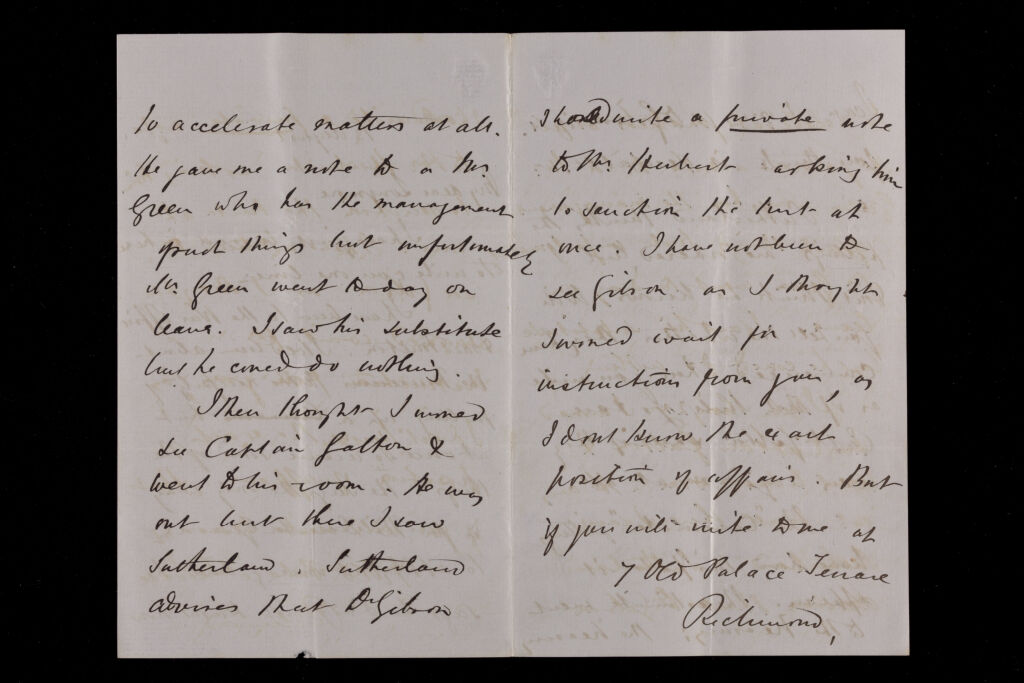 to accelerate matters at all.
He gave me a note to a Mr.
Green who has the management
of such things but unfortunately
Mr. Green went to day on
leave. I saw his substitute
but he could do nothing.
I then thought I would
see Captain Galton &
went to his room. He was
out but there I saw
Sutherland. Sutherland
advises that Dr Gibson
should write a private note
to Mr. Herbert asking him
to sanction the at
once. I have not been to
see Gibson as I thought
I would wait for
instructions from you, as
I dont know the exact
position of affairs. But
if you will write to me at
7 Old Palace Terrace
Richmond,